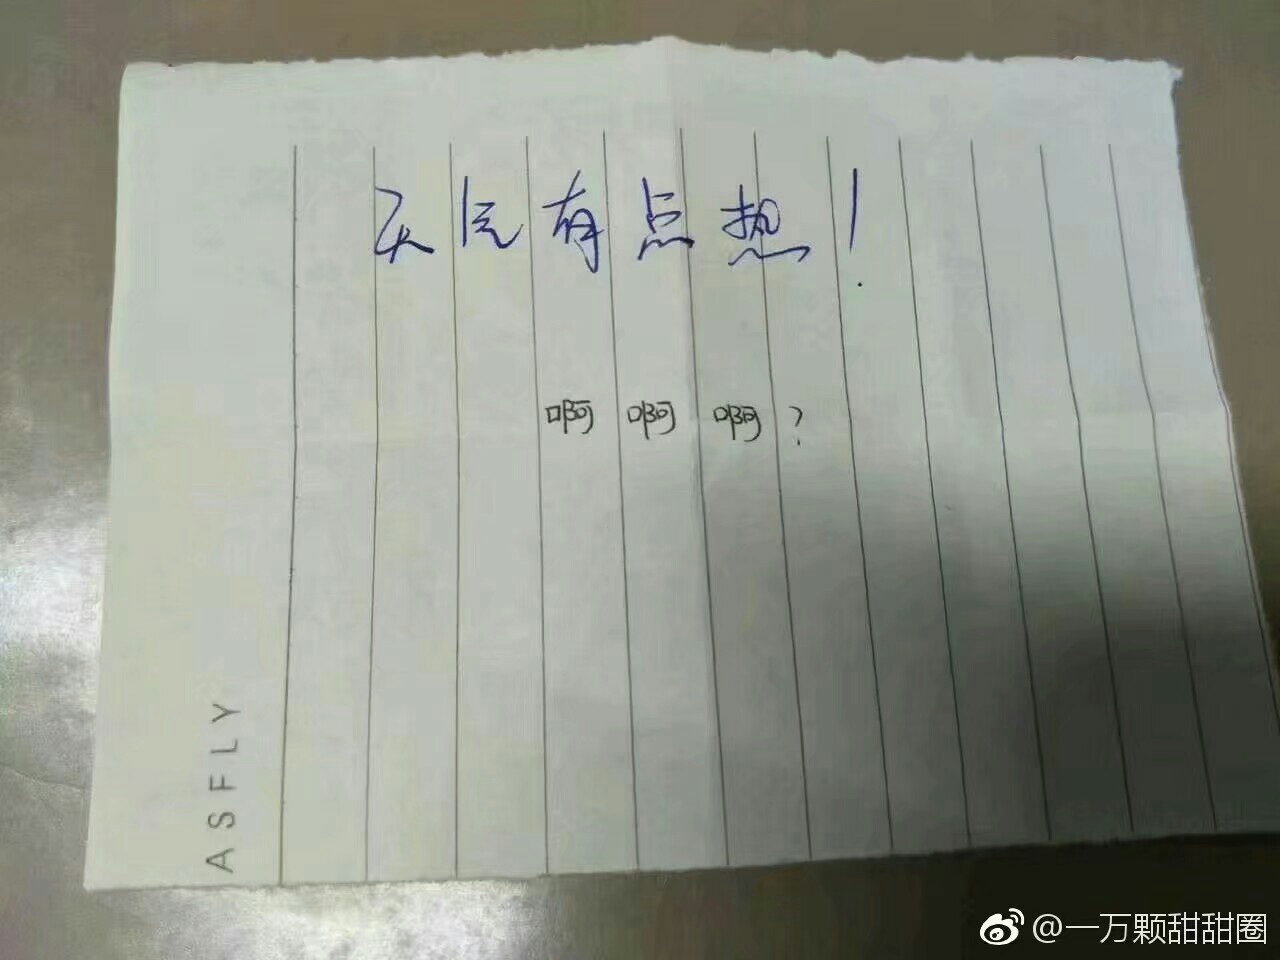 天气有点热！
啊 啊 啊？
ASFLY
@一万颗甜甜圈